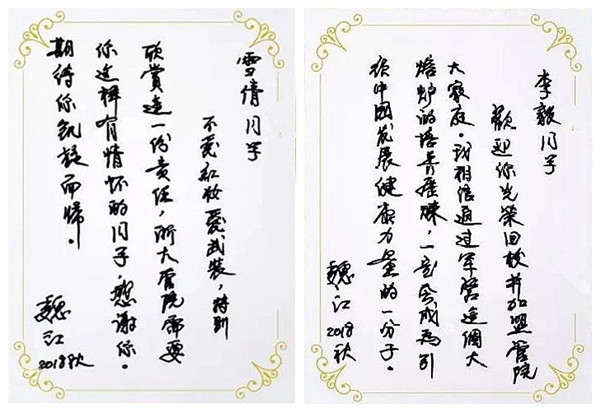 雪倩同学
不爱红妆爱武装，特别
欣赏这一份责任，浙大管院需要
你这样有情怀的同学，感谢你。
期待你凯旋而归。
魏江
2018秋
李毅同学
歡迎你光荣回校并加盟管院
大家庭。我相信通过军营這個大
熔炉的培养锤炼，一定会成为引
领中國发展健康力量的一分子。
魏江
2018
秋